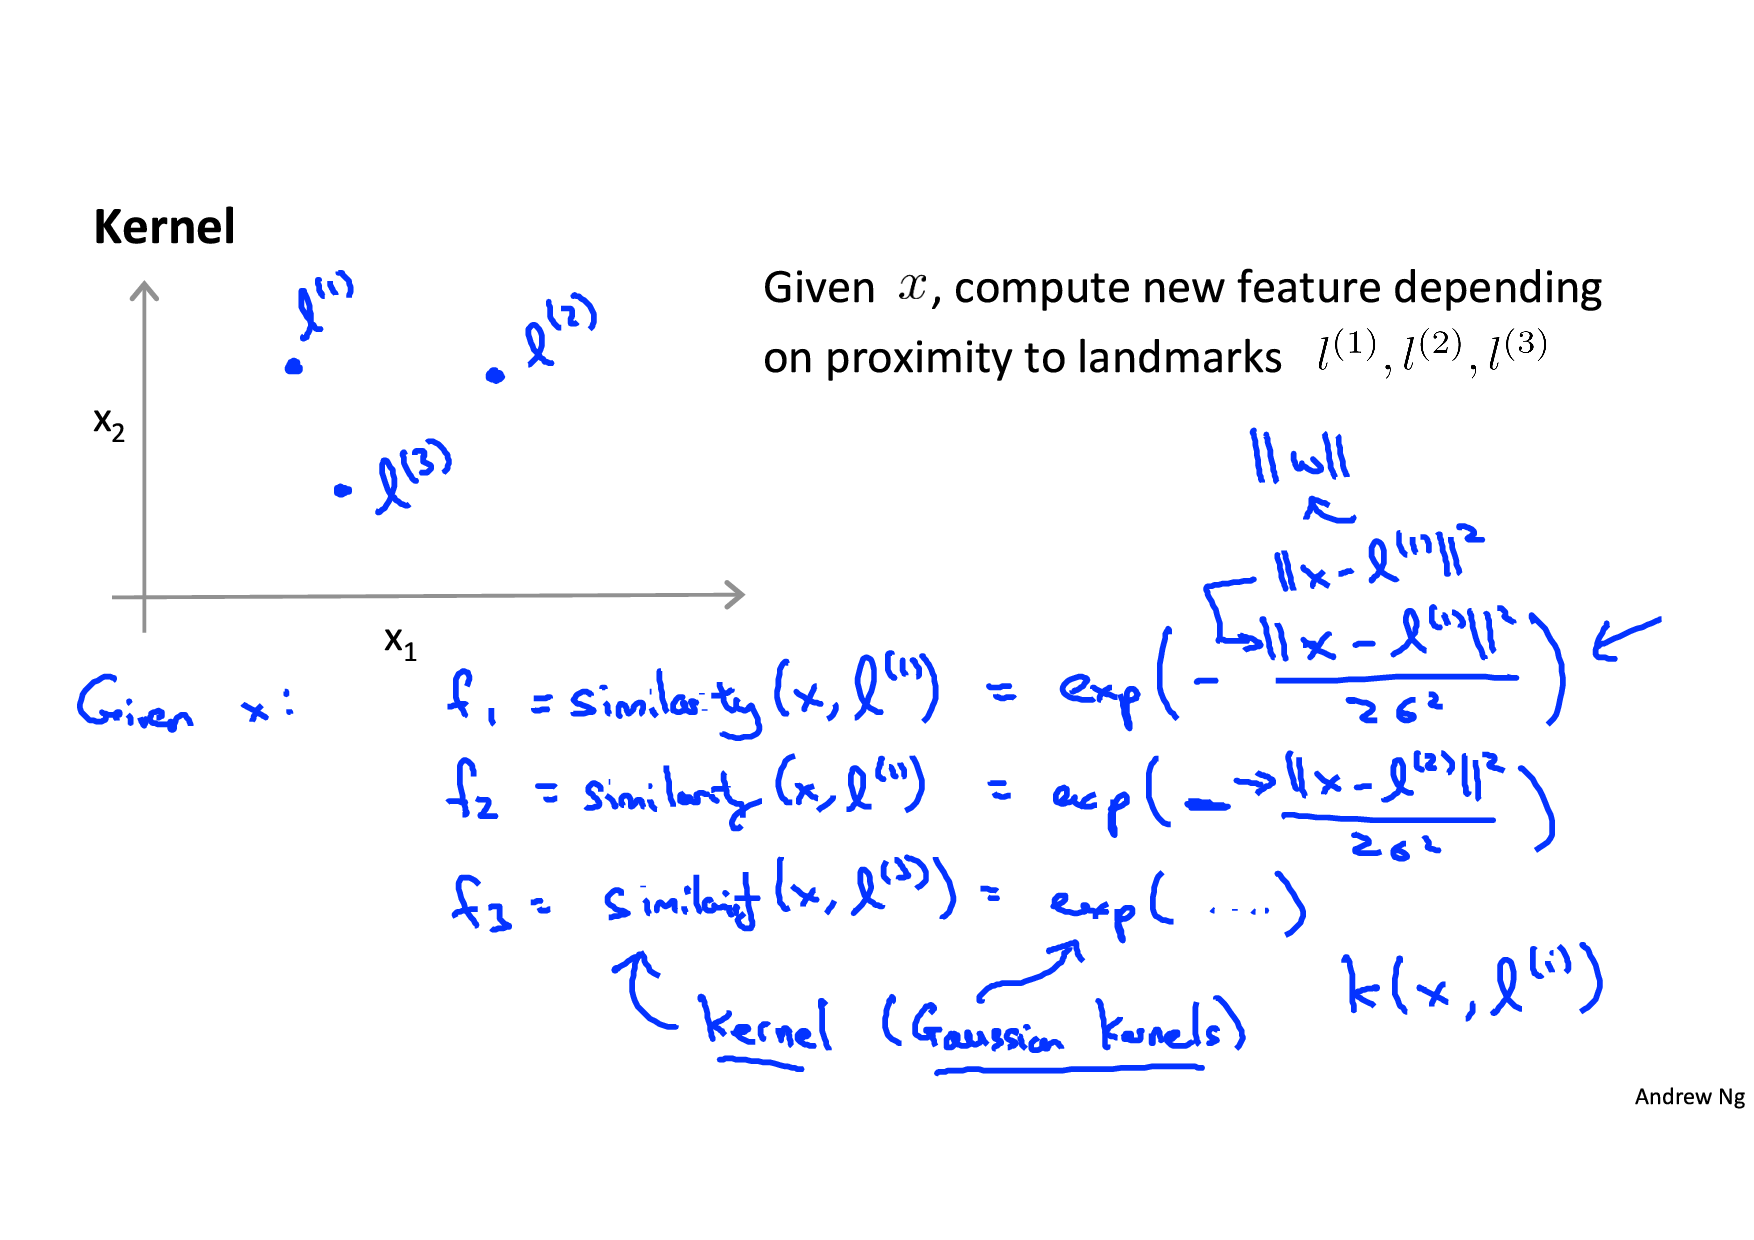 Kernel
l⁽¹⁾
l⁽²⁾
x₂
l⁽³⁾
x₁
Given x, compute new feature depending
on proximity to landmarks l⁽¹⁾, l⁽²⁾, l⁽³⁾
||w||
||x - l⁽¹⁾||²
Given x: f₁ = similarity (x, l⁽¹⁾) = exp( - ||x - l⁽¹⁾||² / 2σ² )
f₂ = similarity (x, l⁽¹⁾) = exp( - ||x - l⁽²⁾||² / 2σ² )
f₃ = similarity (x, l⁽³⁾) = exp( .... )
kernel (Gaussian kernels) k(x, l⁽ⁱ⁾)
Andrew Ng